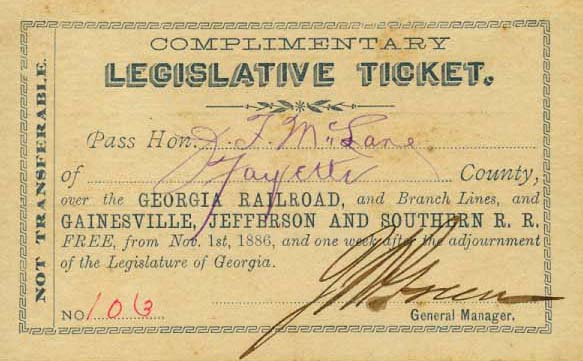 COMPLIMENTARY
LEGISLATIVE TICKET.
NOT TRANSFERABLE.
Pass Hon. J. F. McLane
of Fayette County,
over the GEORGIA RAILROAD, and Branch Lines, and
GAINESVILLE, JEFFERSON AND SOUTHERN R. R.
FREE, from Nov. 1st, 1886, and one week after the adjournment
of the Legislature of Georgia.
NO. 103
General Manager.